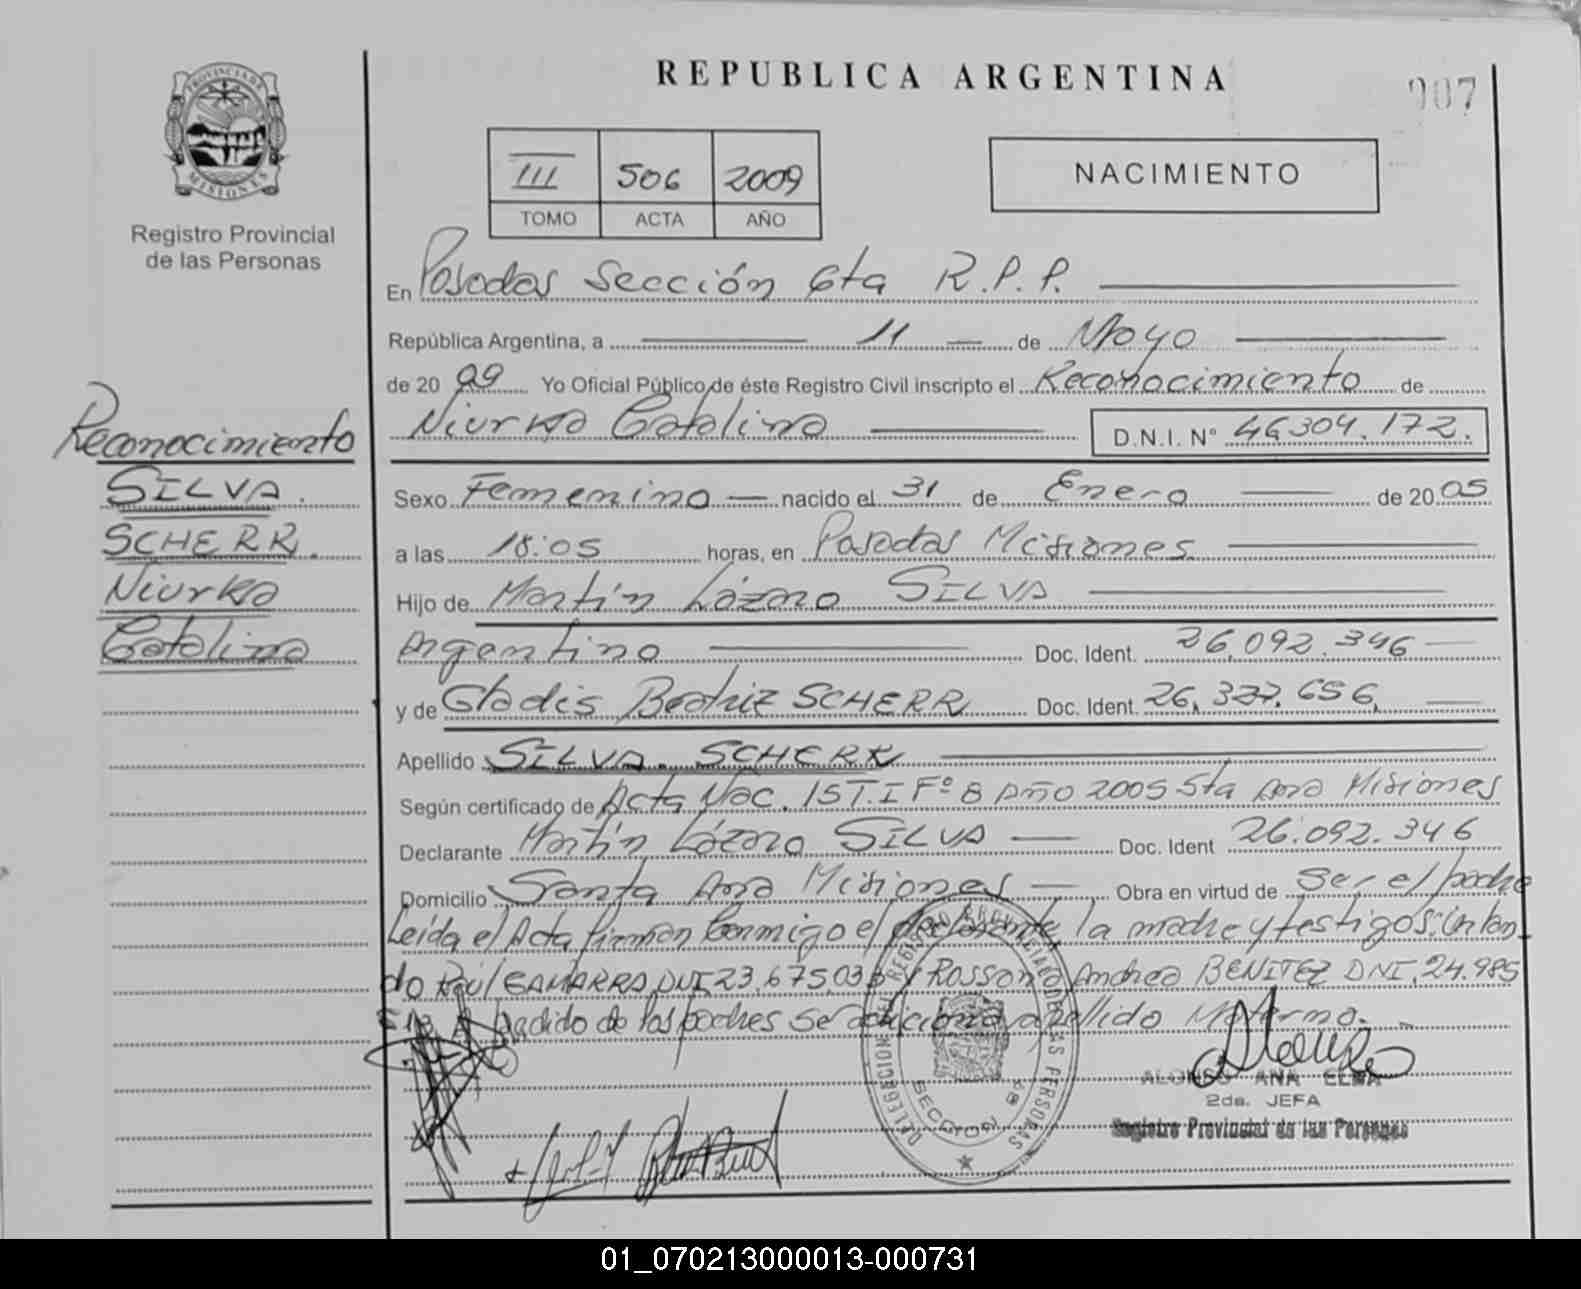 REPUBLICA ARGENTINA
007
PROVINCIA DE MISIONES
Registro Provincial
de las Personas
III 506 2009
TOMO ACTA AÑO
NACIMIENTO
En Posadas Sección 6ta R.P.P.
República Argentina, a 11 de Mayo
de 20 09 Yo Oficial Público de éste Registro Civil inscripto el Reconocimiento de
Niurka Catalina D.N.I. N° 46.304.172.
Reconocimiento
SILVA.
SCHERR.
Niurka
Catalina
Sexo Femenino nacido el 31 de Enero de 20 05
a las 18:05 horas, en Posadas Misiones
Hijo de Martín Lázaro SILVA
Argentino Doc. Ident. 26.092.346
y de Gladis Beatriz SCHERR Doc. Ident. 26.327.656.
Apellido SILVA. SCHERR
Según certificado de Acta Nac. 15 T.I Fº 8 Año 2005 Sta Ana Misiones
Declarante Martín Lázaro SILVA Doc. Ident 26.092.346
Domicilio Santa Ana Misiones Obra en virtud de Ser el padre
Leída el Acta firman Conmigo el declarante, la madre y testigos:
do Raúl GAMARRA DNI. 23.675.03 y Rossana Andrea BENITEZ DNI. 24.985
A pedido de los padres se adiciona apellido Materno.
DELEGACION DEL REGISTRO PROVINCIAL DE LAS PERSONAS
SECCION 6ª
ALONSO ANA ELSA
2da. JEFA
Registro Provincial de las Personas
01_070213000013-000731